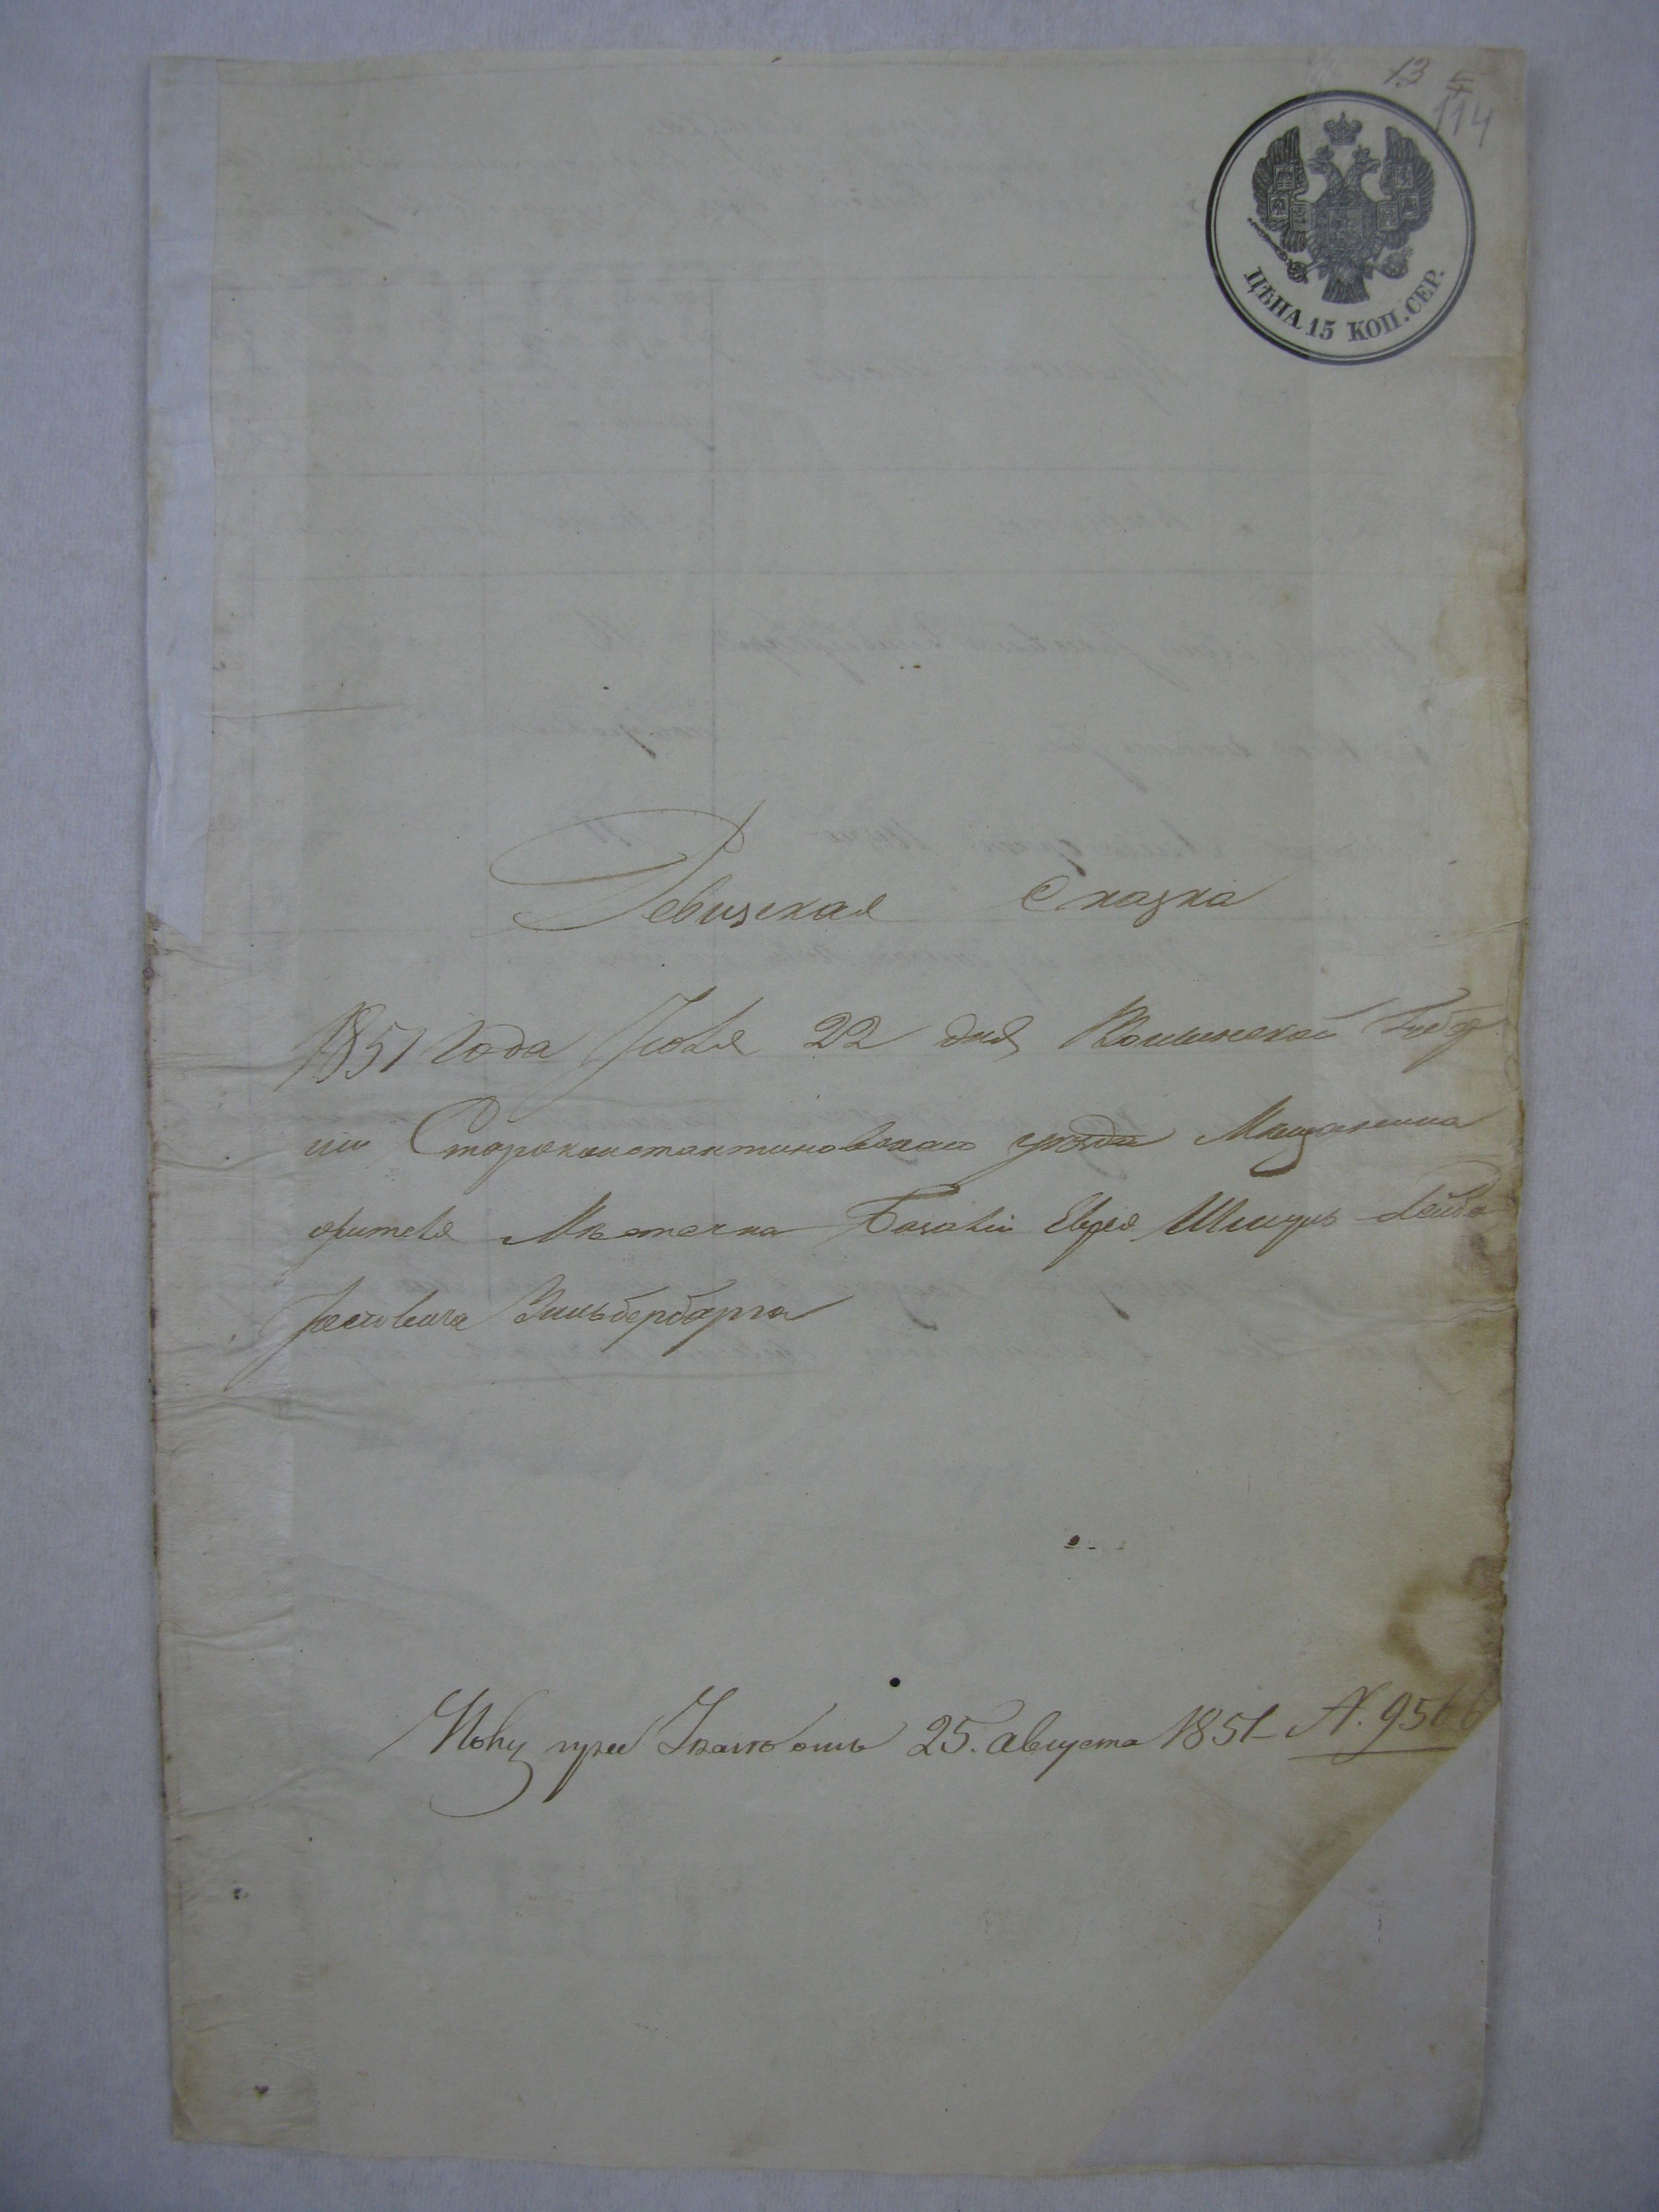 13
114
ЦѢНА 15 КОП. СЕР.
Ревизская Сказка
1851 года Июля 22 дня Волынской Губер
нии Староконстантиновскаго уѣзда Мещанина
жителя Мѣстечка Базаліи Еврея Шмуль Лейба
Іосіовича Зильбербарга
при 25. августа 1851 N. 9566